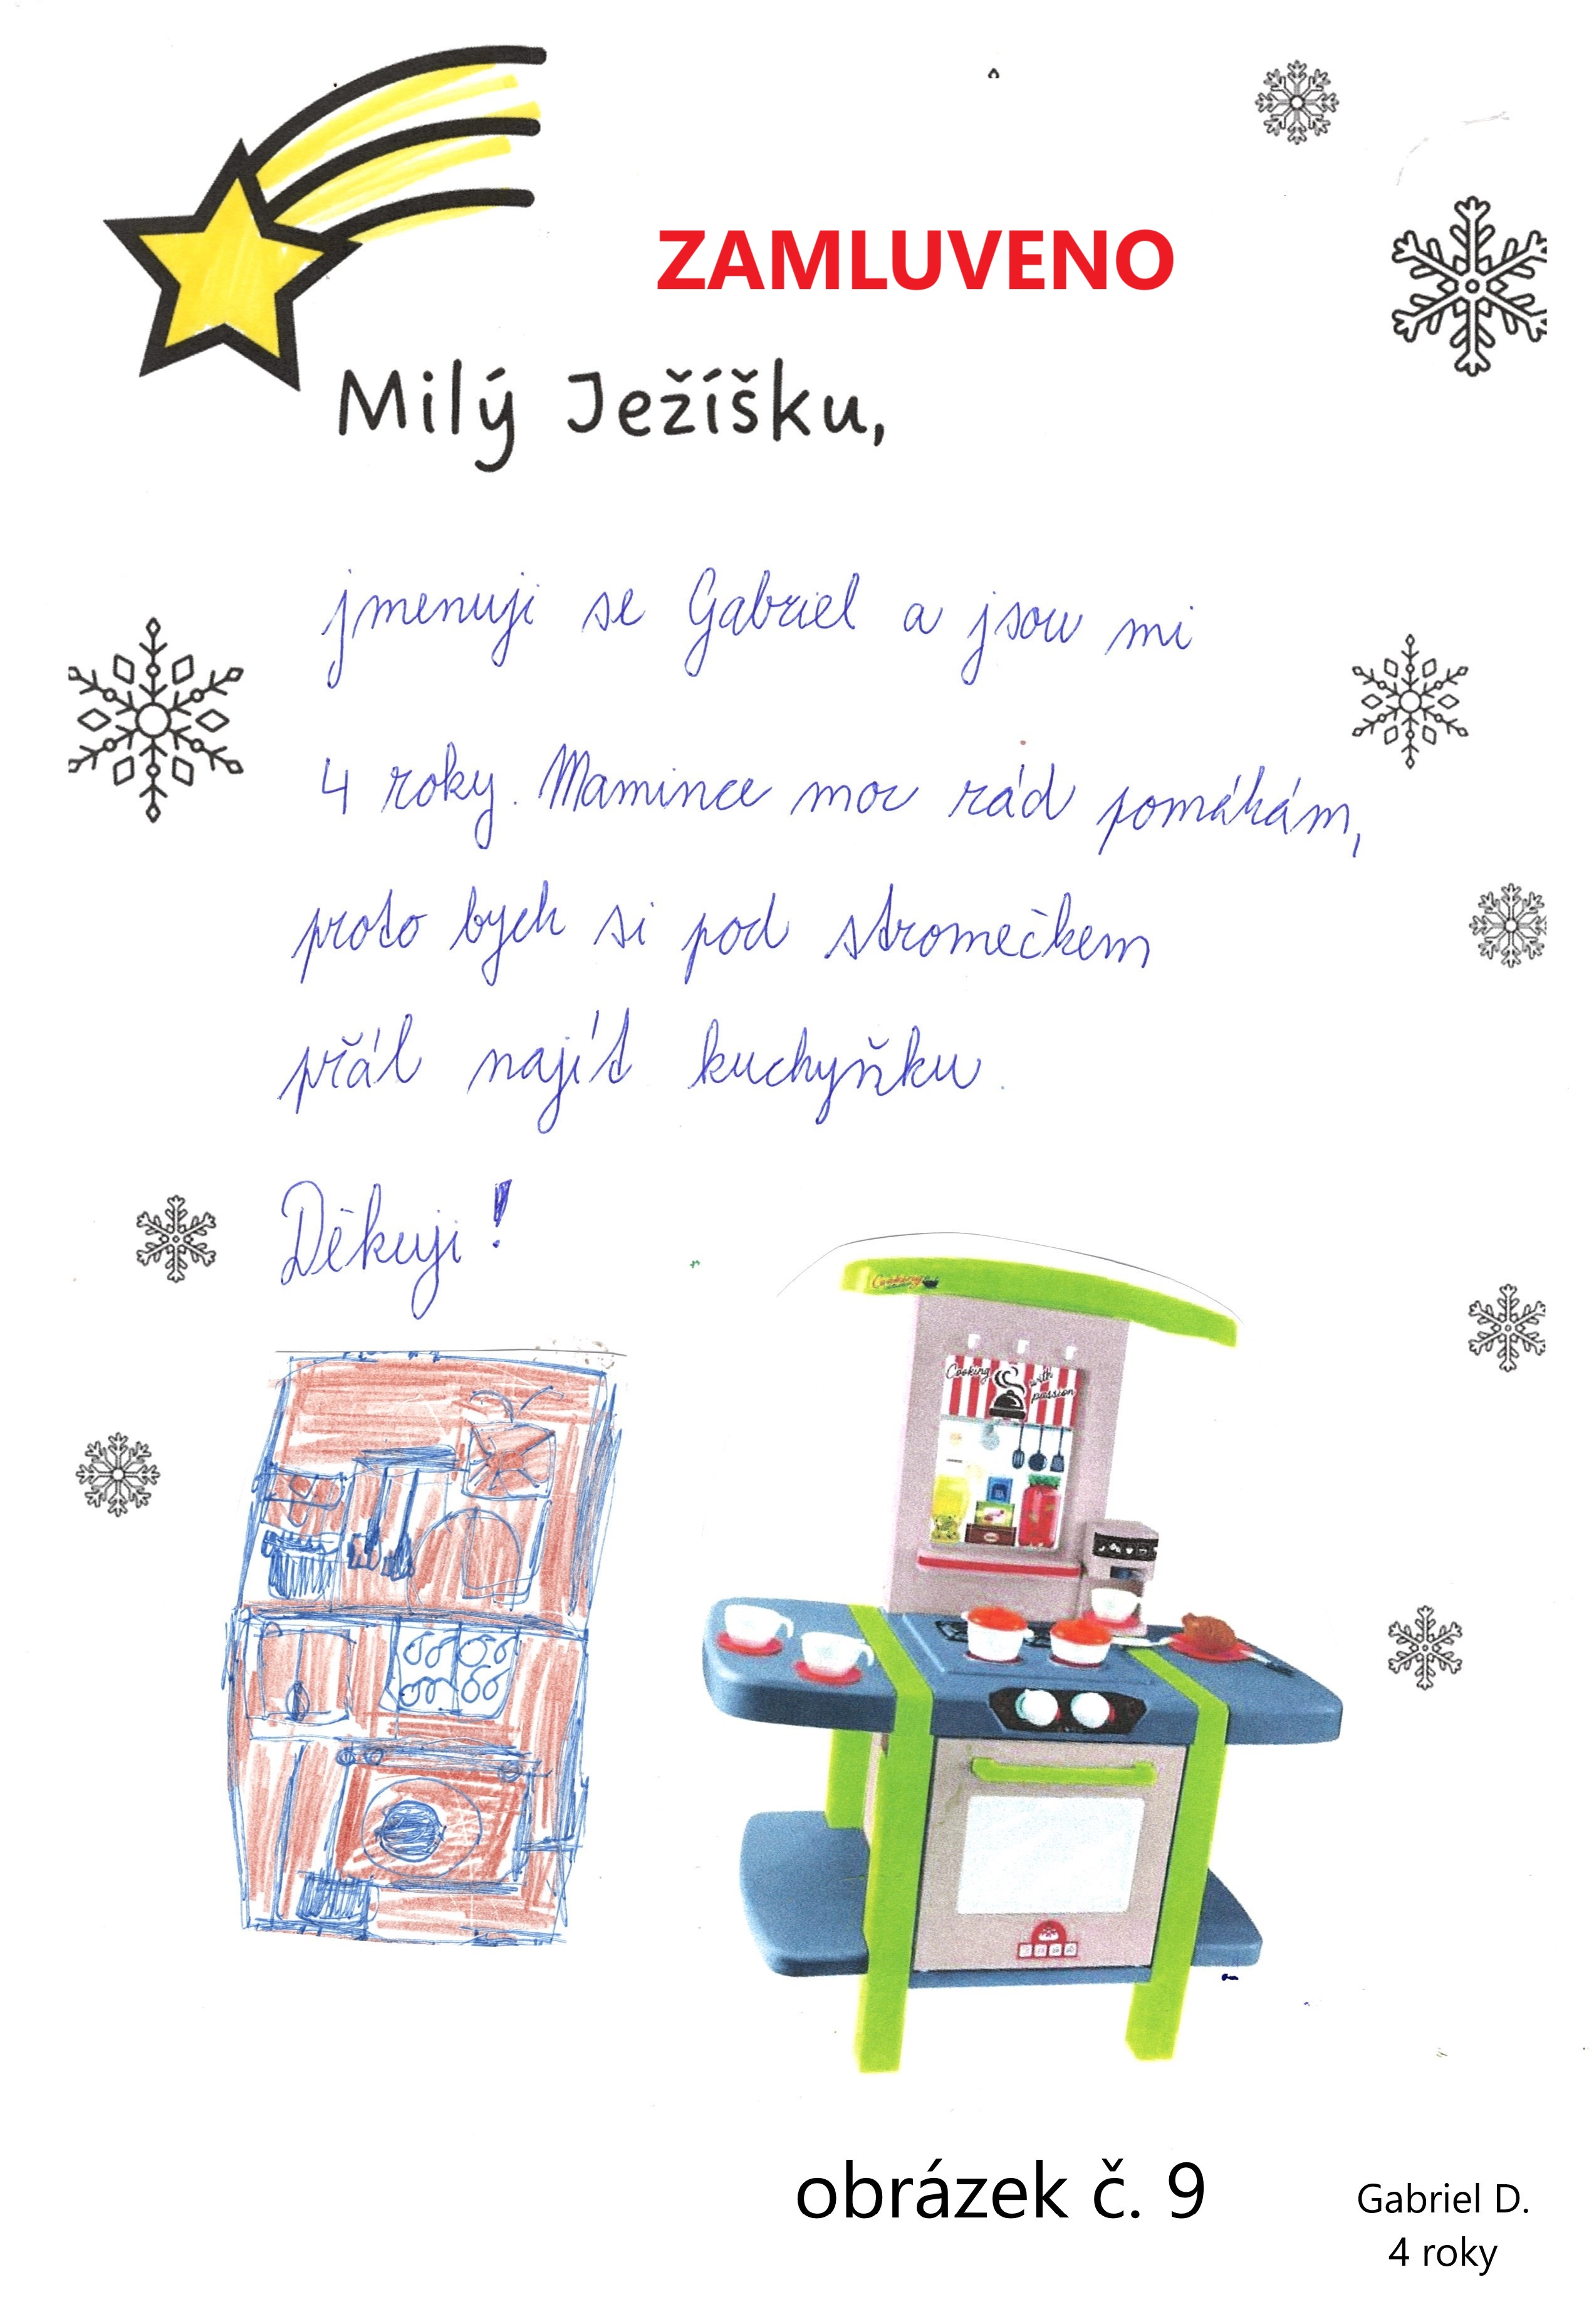 ZAMLUVENO
Milý Ježíšku,
jmenuji se Gabriel a jsou mi
4 roky. Mamince moc rád pomáhám,
proto bych si pod stromečkem
přál najít kuchyňku.
Děkuji!
Cooking
Cooking with passion
obrázek č. 9
Gabriel D.
4 roky